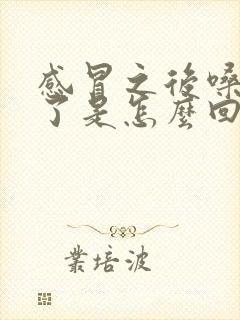 感冒之後嗓
了是怎麼回
業培波